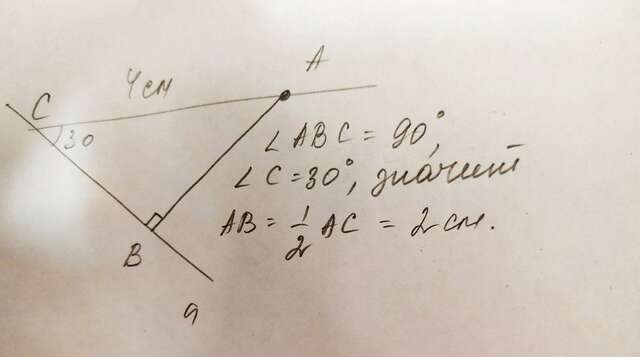 A
4 см
C
30
∠ABC = 90°,
∠C = 30°, значит
AB = 1/2 AC = 2 см.
B
a